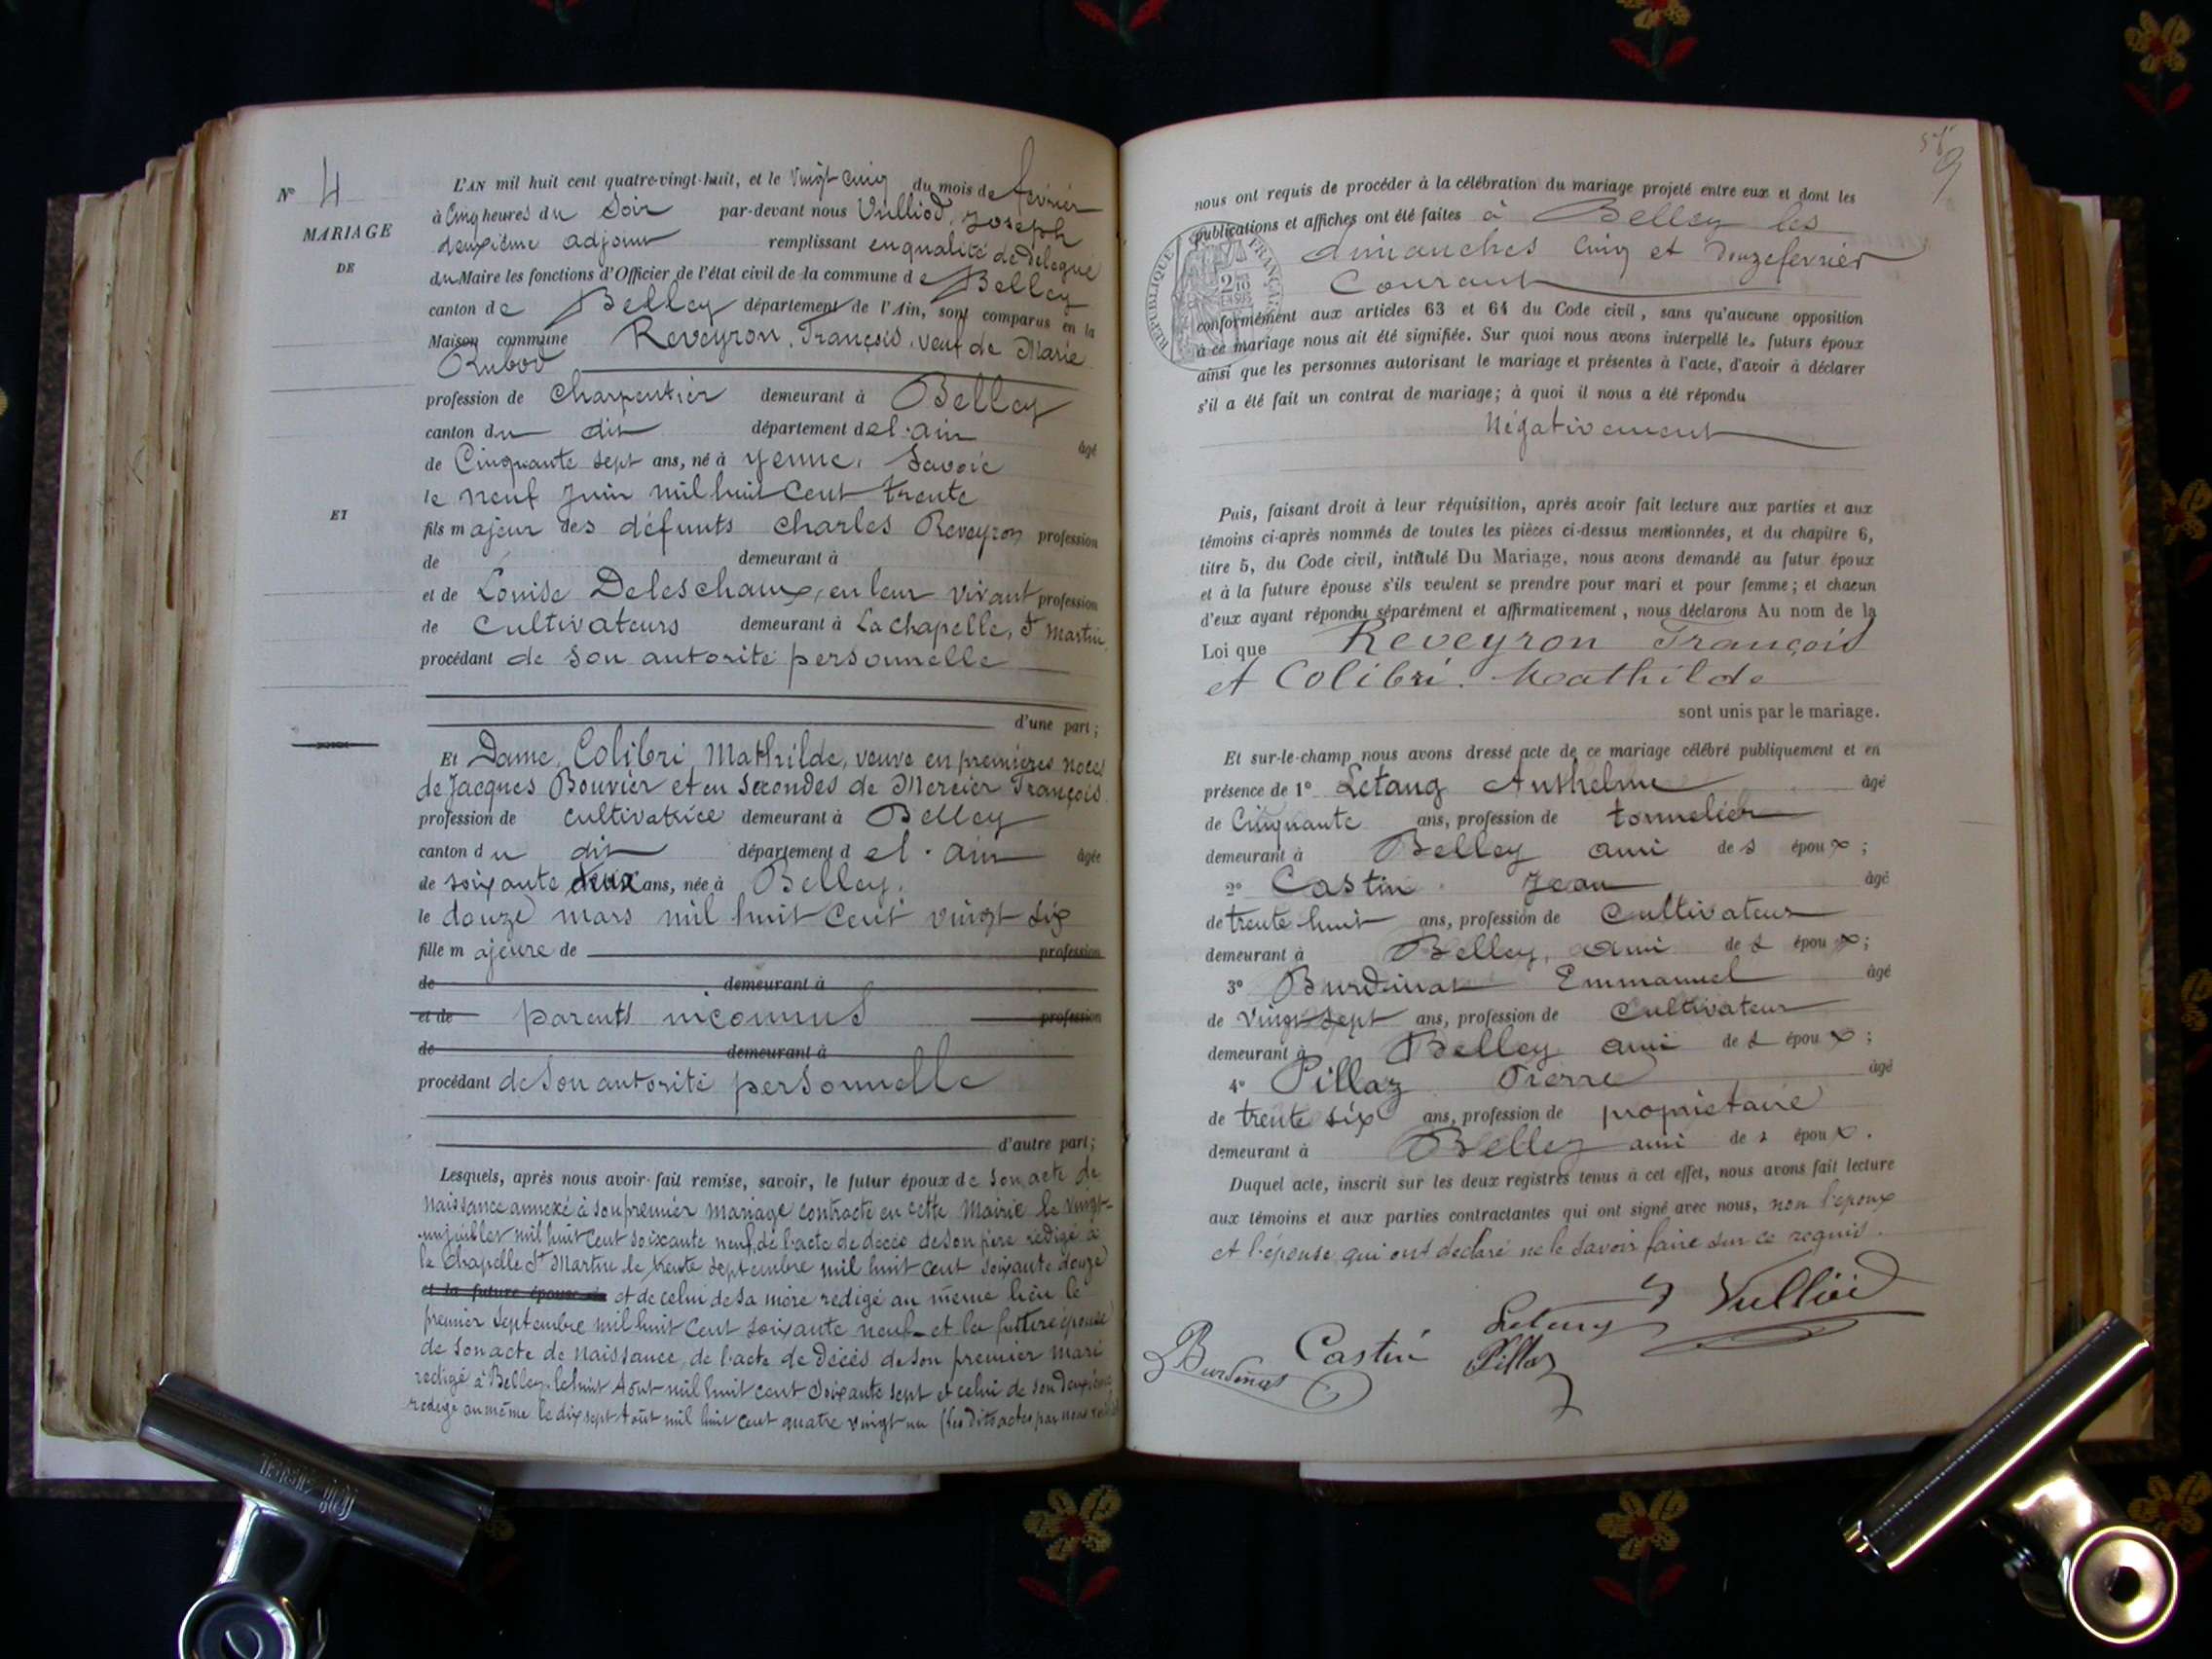 N° 4
MARIAGE
DE
ET
L'AN mil huit cent quatre-vingt-huit, et le vingt cinq du mois de février
à Cinq heures du Soir par-devant nous Vulliod, Joseph
deuxième adjoint remplissant en qualité de Délégué
du Maire les fonctions d'Officier de l'état civil de la commune de Belley
canton de Belley département de l'Ain, sont comparus en la
Maison commune Reveyron, François, veuf de Marie
Rubod
profession de Charpentier demeurant à Belley
canton du dit département de l'ain âgé
de Cinquante sept ans, né à Yenne, Savoie
le neuf Juin mil huit Cent trente
fils majeur des défunts Charles Reveyron profession
de demeurant à
et de Louise Deleschaux, en leur vivant profession
de Cultivateurs demeurant à La Chapelle, St Martin
procédant de son autorité personnelle
d'une part;
Et Dame Colibri, Mathilde, veuve en premières noces
de Jacques Bouvier et en Secondes de Mercier François
profession de Cultivatrice demeurant à Belley
canton du dit département de l'ain âgée
de soixante deux ans, née à Belley,
le douze mars mil huit Cent vingt Six
fille majeure de profession
de demeurant à
et de parents inconnus profession
de demeurant à
procédant de son autorité personnelle
d'autre part;
Lesquels, après nous avoir fait remise, savoir, le futur époux de son acte de
naissance annexé à son premier mariage contracté en cette Mairie le vingt-
un juillet mil huit Cent soixante neuf, de l'acte de décès de son père rédigé à
la Chapelle St Martin le trente septembre mil huit cent soixante douze
et la future épouse et de celui de sa mère redigé au même lieu le
premier Septembre mil huit Cent soixante neuf et la future épouse
de son acte de naissance, de l'acte de décès de son premier mari
redigé à Belley, le huit Aout mil huit cent soixante sept et celui de son deuxième
redigé au même le dix sept Août mil huit Cent quatre vingt un (les dits actes par nous
9
nous ont requis de procéder à la célébration du mariage projeté entre eux et dont les
publications et affiches ont été faites à Belley les
dimanches Cinq et Douze février
Courant
RÉPUBLIQUE FRANÇAISE
conformément aux articles 63 et 64 du Code civil, sans qu'aucune opposition
à ce mariage nous ait été signifiée. Sur quoi nous avons interpellé les futurs époux
ainsi que les personnes autorisant le mariage et présentes à l'acte, d'avoir à déclarer
s'il a été fait un contrat de mariage; à quoi il nous a été répondu
Négativement
Puis, faisant droit à leur réquisition, après avoir fait lecture aux parties et aux
témoins ci-après nommés de toutes les pièces ci-dessus mentionnées, et du chapitre 6,
titre 5, du Code civil, intitulé Du Mariage, nous avons demandé au futur époux
et à la future épouse s'ils veulent se prendre pour mari et pour femme; et chacun
d'eux ayant répondu séparément et affirmativement, nous déclarons Au nom de la
Loi que Reveyron François
et Colibri. Mathilde
sont unis par le mariage.
Et sur-le-champ nous avons dressé acte de ce mariage célébré publiquement et en
présence de 1° Letang Anthelme âgé
de Cinquante ans, profession de tonnelier
demeurant à Belley ami des époux;
2° Castin Jean âgé
de trente huit ans, profession de Cultivateur
demeurant à Belley, ami des époux;
3° Burdinat Emmanuel âgé
de Vingt sept ans, profession de Cultivateur
demeurant à Belley ami des époux;
4° Pillaz Pierre âgé
de trente six ans, profession de propriétaire
demeurant à Belley ami des époux.
Duquel acte, inscrit sur les deux registres tenus à cet effet, nous avons fait lecture
aux témoins et aux parties contractantes qui ont signé avec nous, non l'époux
et l'épouse qui ont déclaré ne le savoir faire sur ce requis.
Letang J Vulliod
Burdinat Castin Pillaz